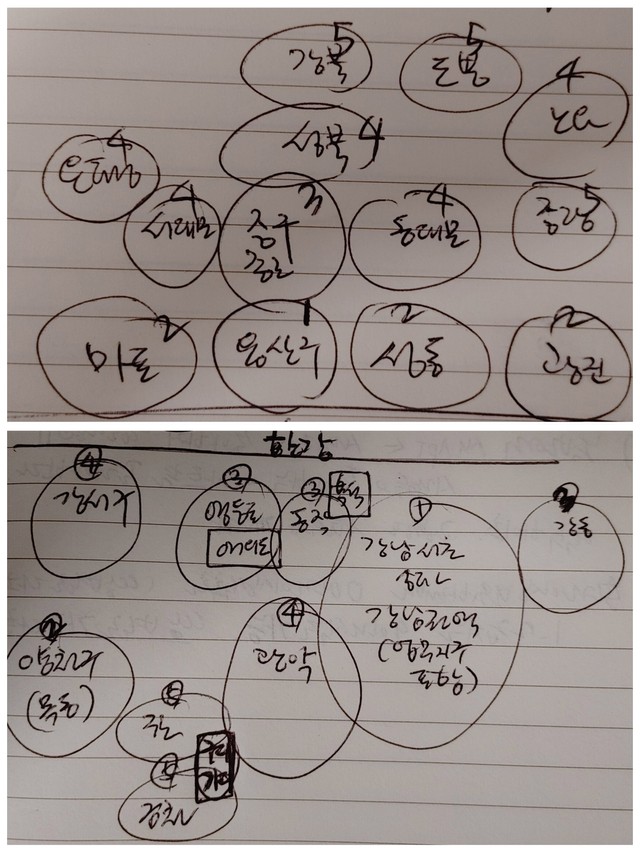 5
강북
5
도봉
4
노원
성북 4
4
4
서대문
3
중구
종로
4
동대문
5
중랑
2
마포
1
용산구
2
성동
2
한강
④
강서구
③
영등포
여의도
③
동작
흑석
①
강남 서초
송파
강남권역
포함)
강동
②
양천구
(목동)
④
관악
⑤
구로
구디
가디
⑤
금천